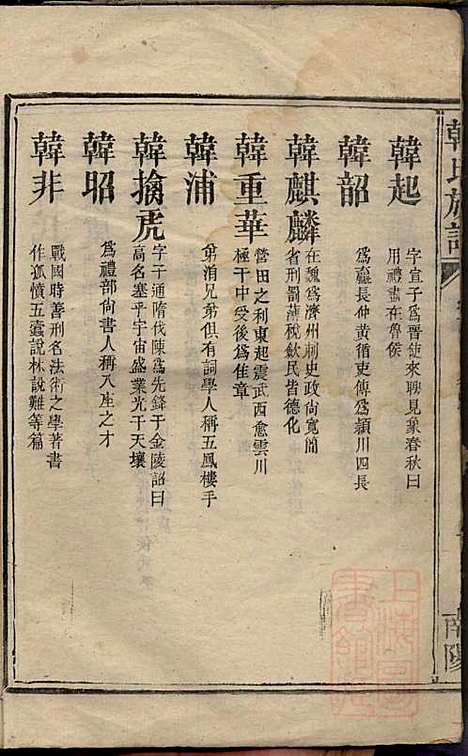 韓氏族譜
南陽
韓起
字宣子為晉使來聘見象春秋曰
用禮盡在魯侯
韓韶
為嬴長仲黃循吏傳為潁川四長
韓麒麟
在魏為濟州刺史政尚寬簡
省刑罰薄稅歛民皆德化
韓重華
營田之利東起震武西愈雲川
極于中受後為佳章
韓浦
弟洎兄弟但有詞學人稱五鳳樓手
韓擒虎
字子通隋伐陳為先鋒于金陵詔曰
高名塞乎宇宙盛業光于天壤
韓昭
為禮部尚書人稱八座之才
韓非
戰國時善刑名法術之學著書
作孤憤五蠹說林說難等篇
上海圖書館藏